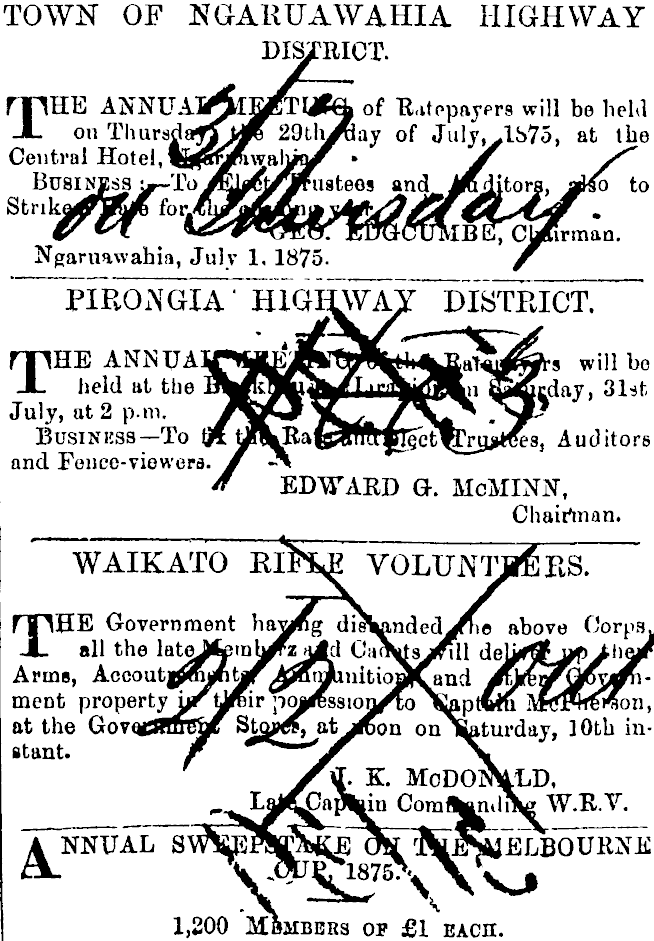 TOWN OF NGARUAWAHIA HIGHWAY
DISTRICT.
THE ANNUAL MEETING of Ratepayers will be held
on Thursday, the 29th day of July, 1875, at the
Central Hotel, Ngaruawahia.
BUSINESS:—To Elect Trustees and Auditors, also to
Strike a Rate for the ensuing year.
on Thursday.
GEO. EDGCUMBE, Chairman.
Ngaruawahia, July 1, 1875.
PIRONGIA HIGHWAY DISTRICT.
THE ANNUAL MEETING of the Ratepayers will be
held at the on Saturday, 31st
July, at 2 p.m.
BUSINESS—To fix the Rate and Elect Trustees, Auditors
and Fence-viewers.
EDWARD G. McMINN,
Chairman.
WAIKATO RIFLE VOLUNTEERS.
THE Government having disbanded the above Corps,
all the late Members and Cadets will deliver up their
Arms, Accoutrements, Ammunition, and other Govern-
ment property in their possession, to Captain McPherson,
at the Government Stores, at noon on Saturday, 10th in-
stant.
2/2 out
J. K. McDONALD,
Late Captain Commanding W.R.V.
ANNUAL SWEEPSTAKE ON THE MELBOURNE
CUP, 1875.
1,200 MEMBERS OF £1 EACH.